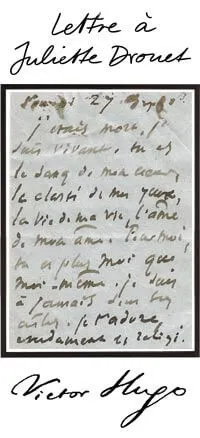 Lettre à
Juliette Drouet
27
j'étais mort, je
suis vivant. tu es
le sang de mon coeur,
la clarté de mes yeux,
la vie de ma vie, l'âme
de mon âme. Pour moi,
tu es plus moi que
moi-même. je suis
à jamais dans tes
je t'adore
ardemment et religi.
Victor Hugo